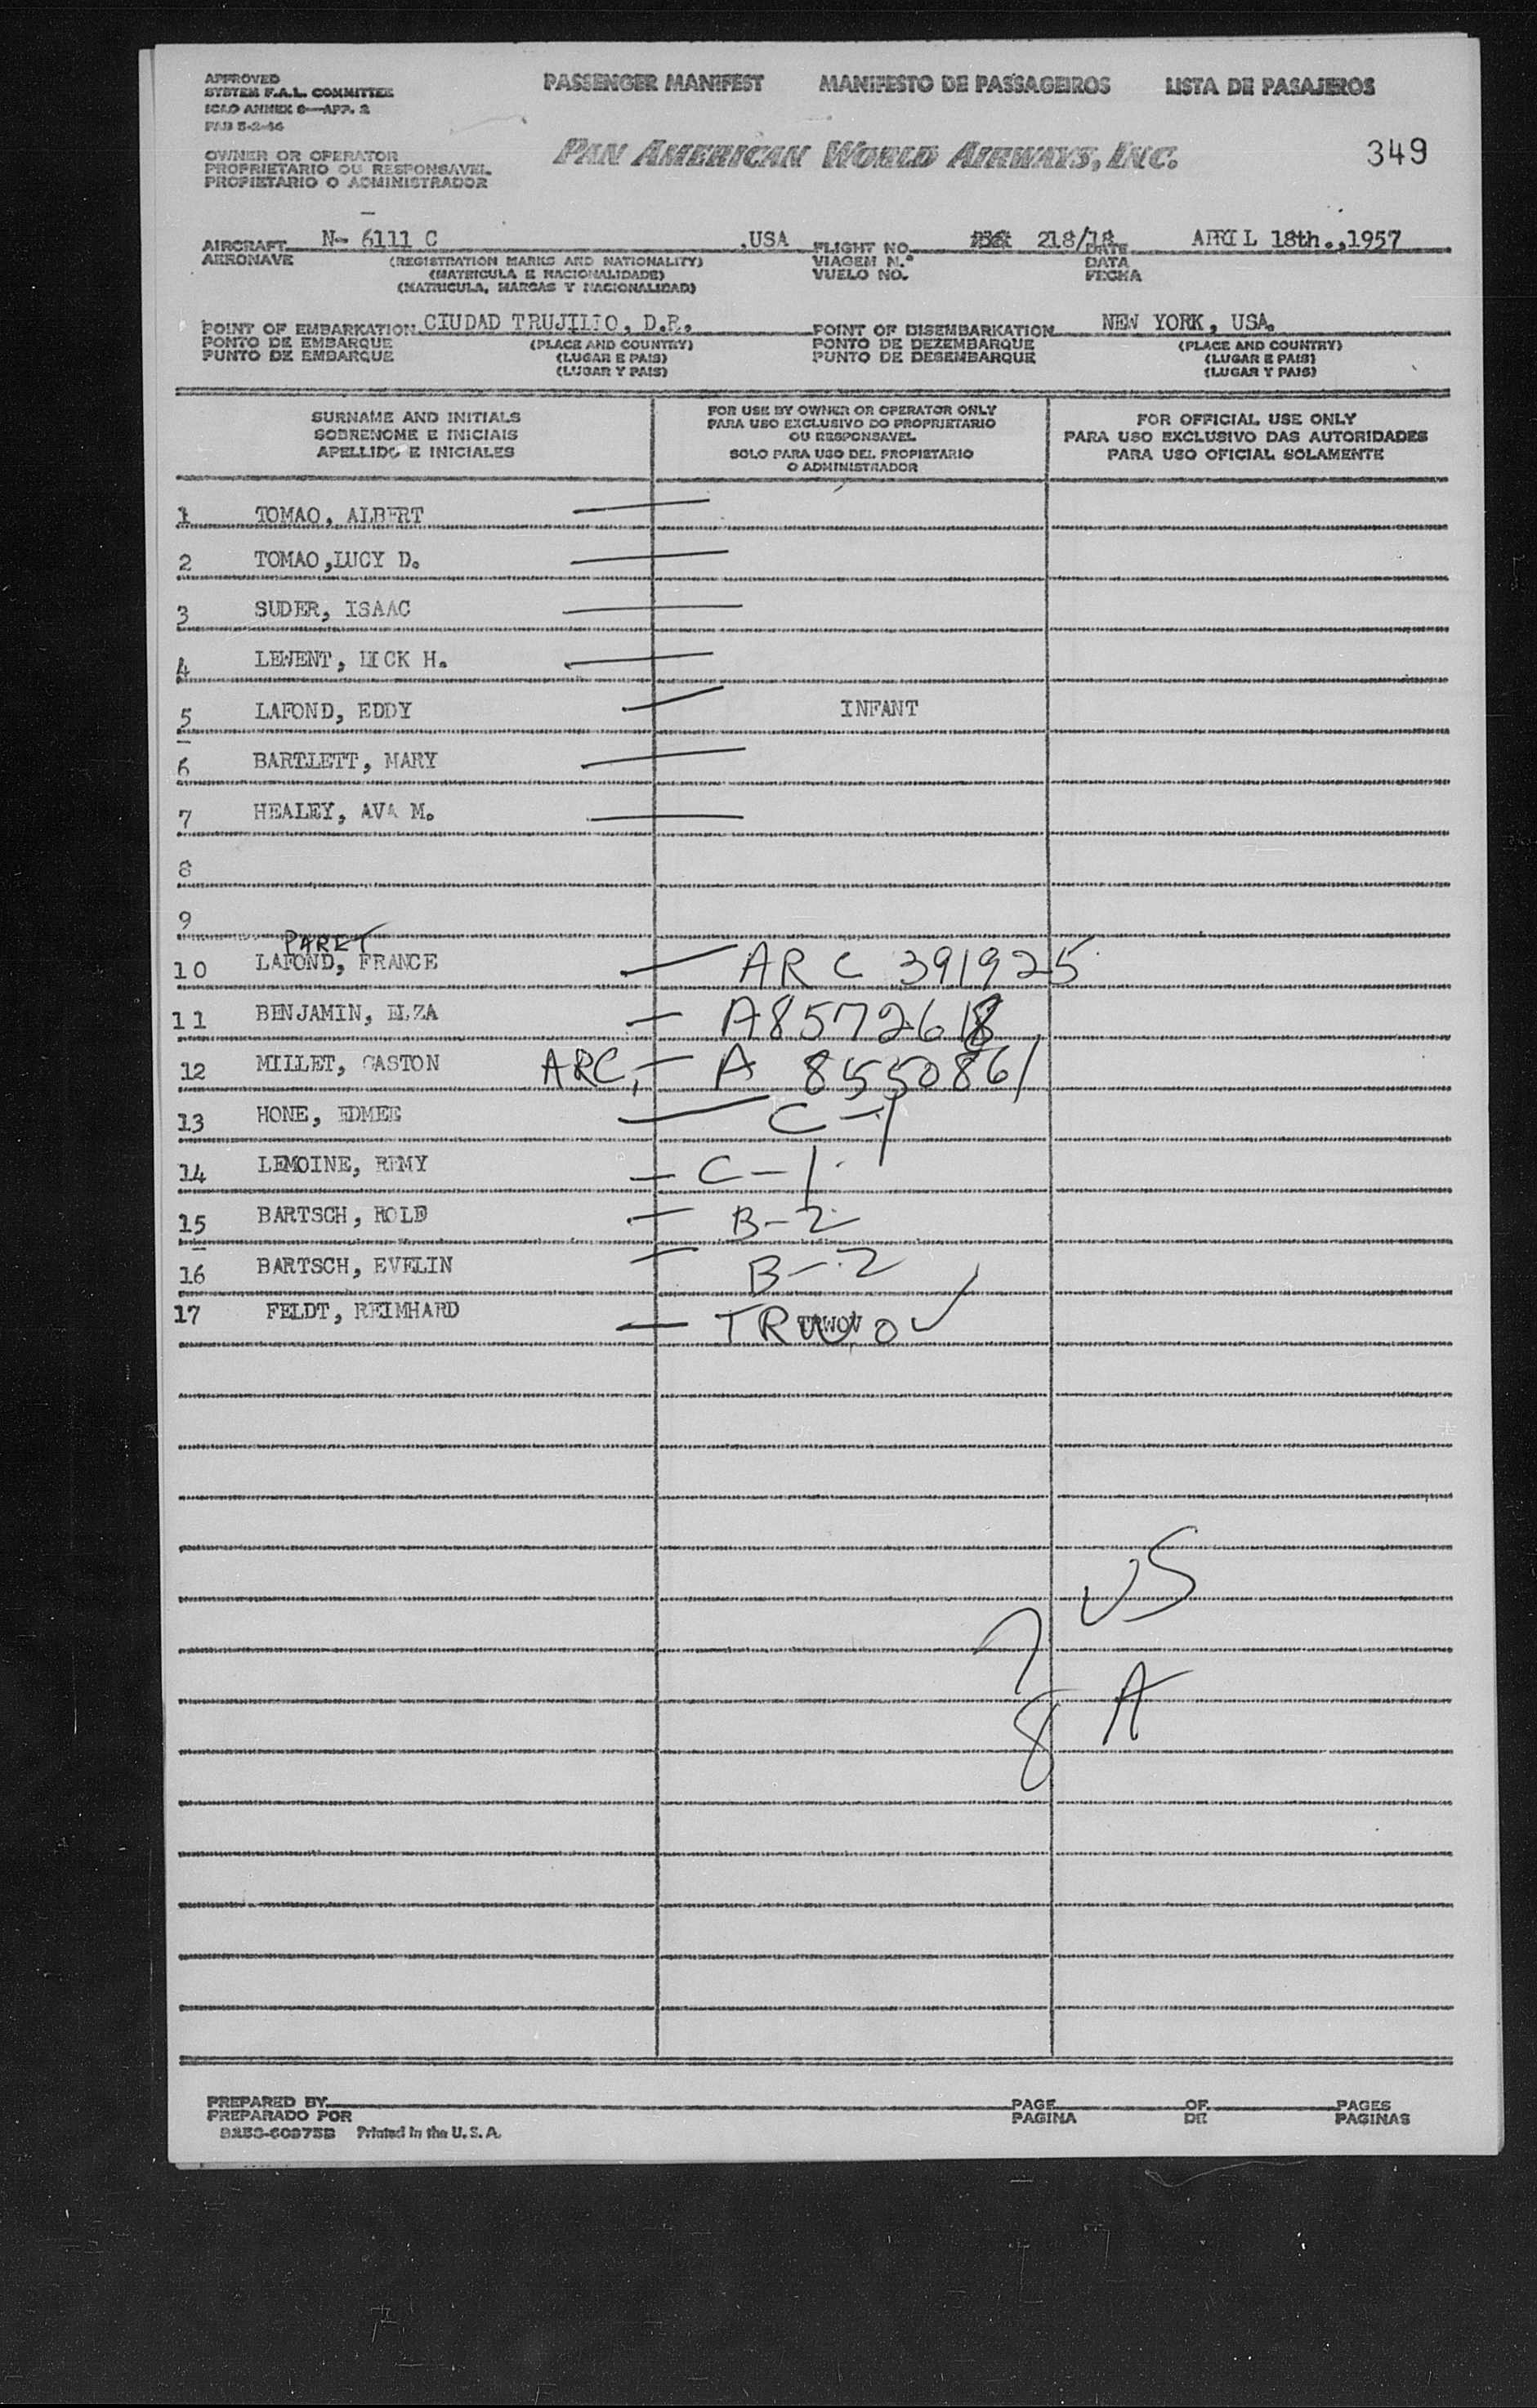 APPROVED
SYSTEM F.A.L. COMMITTEE
ICAO ANNEX 9—APP. 2
PAB 5-2-46
PASSENGER MANIFEST MANIFESTO DE PASSAGEIROS LISTA DE PASAJEROS
OWNER OR OPERATOR
PROPRIETARIO OU RESPONSAVEL
PROPIETARIO O ADMINISTRADOR
PAN AMERICAN WORLD AIRWAYS, INC. 349
AIRCRAFT N- 6111 C ,USA FLIGHT NO. 218/18 DATE APRIL 18th.,1957
AERONAVE (REGISTRATION MARKS AND NATIONALITY) VIAGEM N.º DATA
(MATRICULA E NACIONALIDADE) VUELO NO. FECHA
(MATRICULA, MARCAS Y NACIONALIDAD)
POINT OF EMBARKATION CIUDAD TRUJILLO, D.R. POINT OF DISEMBARKATION NEW YORK, USA.
PONTO DE EMBARQUE (PLACE AND COUNTRY) PONTO DE DEZEMBARQUE (PLACE AND COUNTRY)
PUNTO DE EMBARQUE (LUGAR E PAIS) PUNTO DE DESEMBARQUE (LUGAR E PAIS)
(LUGAR Y PAIS) (LUGAR Y PAIS)
SURNAME AND INITIALS
SOBRENOME E INICIAIS
APELLIDO E INICIALES
FOR USE BY OWNER OR OPERATOR ONLY
PARA USO EXCLUSIVO DO PROPRIETARIO
OU RESPONSAVEL
SOLO PARA USO DEL PROPIETARIO
O ADMINISTRADOR
FOR OFFICIAL USE ONLY
PARA USO EXCLUSIVO DAS AUTORIDADES
PARA USO OFICIAL SOLAMENTE
1 TOMAO, ALBERT
2 TOMAO,LUCY D.
3 SUDER, ISAAC
4 LEWENT, H.
5 LAFOND, EDDY INFANT
6 BARTLETT, MARY
7 HEALEY, AVA M.
8
9
PARET
10 LAFOND, FRANCE — ARC 391925
11 BENJAMIN, ELZA — A8572618
12 MILLET, GASTON ARC, — A 8550861
13 HONE, EDMEE — C-1
14 LEMOINE, REMY — C-1
15 BARTSCH, ROLF — B-2
16 BARTSCH, EVELIN — B-2
17 FELDT, REIMHARD — TRWOV
7 US
8 A
PREPARED BY PAGE OF PAGES
PREPARADO POR PAGINA DE PAGINAS
Printed in the U. S. A.